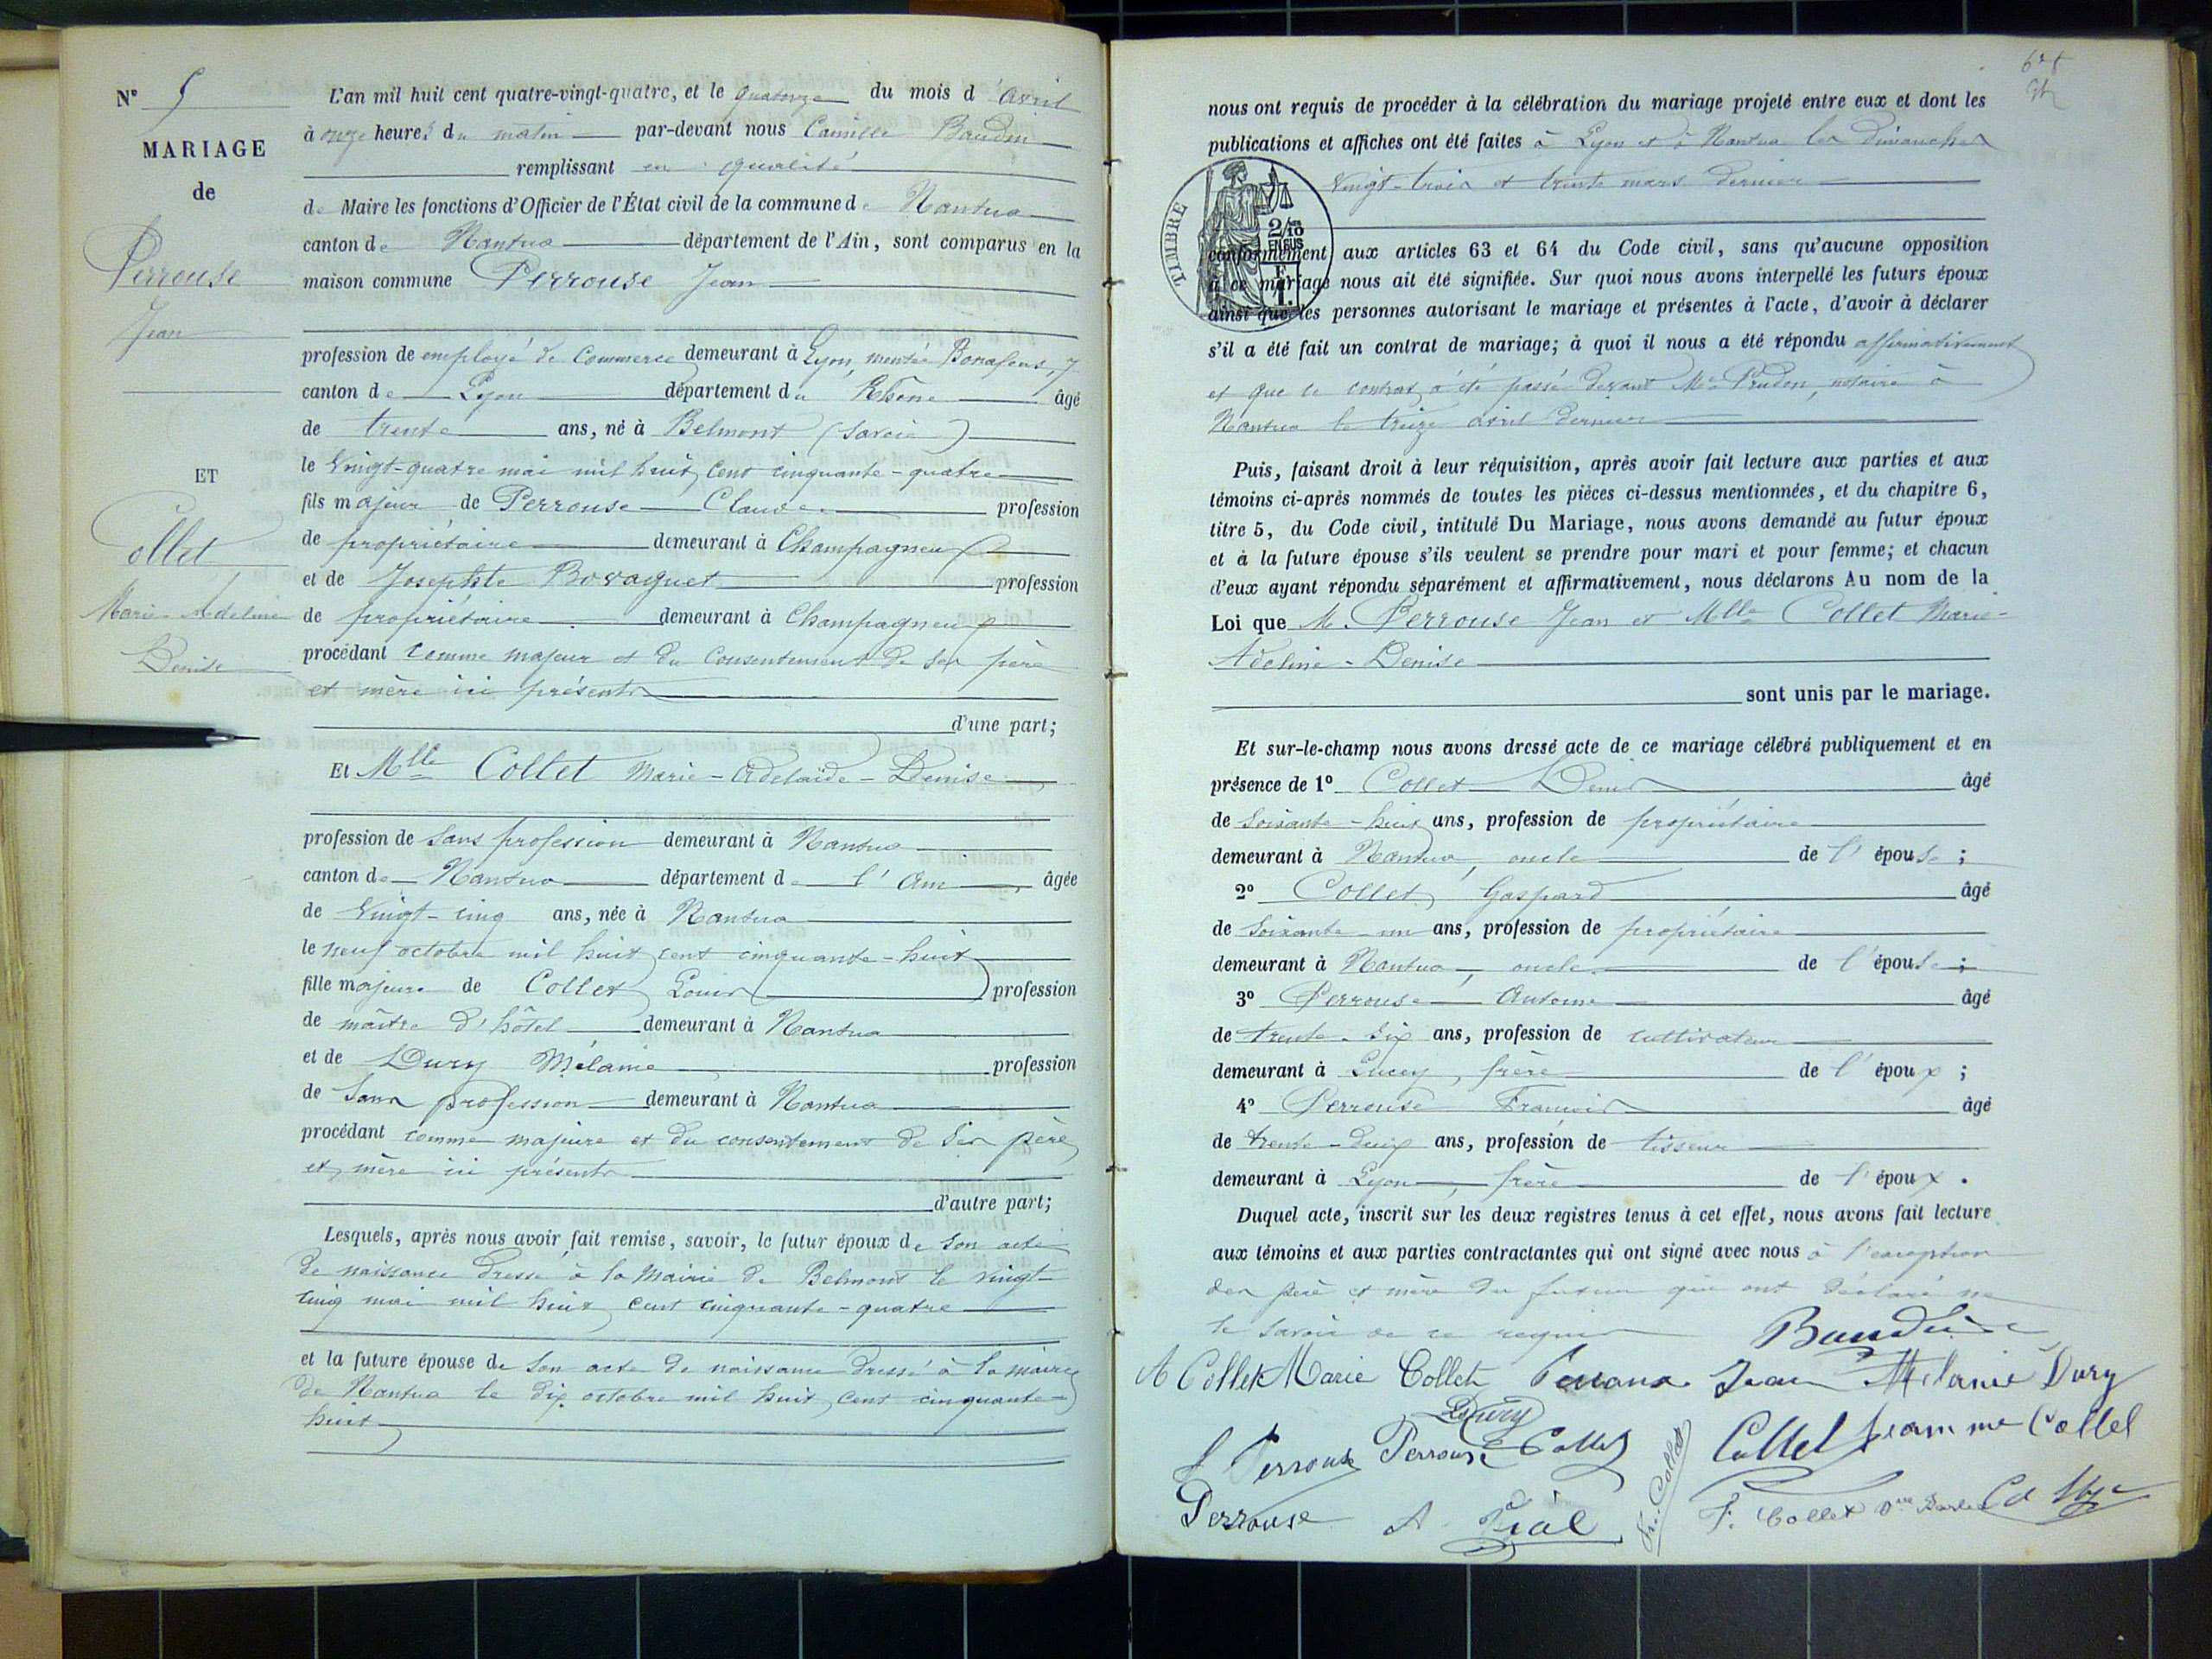 N° 5
MARIAGE
de
Perrouse
Jean
ET
Collet
Marie-Adeline
Denise
L'an mil huit cent quatre-vingt-quatre, et le quatorze du mois d'Avril
à onze heures du matin par-devant nous Camille Baudin
remplissant en qualité
de Maire les fonctions d'Officier de l'État civil de la commune de Nantua
canton de Nantua département de l'Ain, sont comparus en la
maison commune Perrouse Jean
profession de employé de Commerce demeurant à Lyon, montée Bonafous, 7
canton de Lyon département du Rhône âgé
de trente ans, né à Belmont (Savoie)
le Vingt-quatre mai mil huit cent cinquante-quatre
fils majeur de Perrouse Claude profession
de propriétaire demeurant à Champagneux
et de Josephte Bovagnet profession
de propriétaire demeurant à Champagneux
procédant comme majeur et du Consentement de ses père
et mère ici présents
d'une part;
Et Mlle Collet Marie-Adelaïde-Denise
profession de Sans profession demeurant à Nantua
canton de Nantua département de l'Ain âgée
de Vingt-cinq ans, née à Nantua
le neuf octobre mil huit cent cinquante-huit
fille majeure de Collet Louis profession
de maître d'hôtel demeurant à Nantua
et de Dury Mélanie profession
de Sans profession demeurant à Nantua
procédant comme majeure et du consentement de ses père
et mère ici présents
d'autre part;
Lesquels, après nous avoir fait remise, savoir, le futur époux de son acte
de naissance dressé à la Mairie de Belmont le vingt-
cinq mai mil huit cent cinquante-quatre
et la future épouse de son acte de naissance dressé à la mairie
de Nantua le dix octobre mil huit cent cinquante-
huit
nous ont requis de procéder à la célébration du mariage projeté entre eux et dont les
publications et affiches ont été faites à Lyon et à Nantua les dimanches
Vingt-trois et trente mars dernier
TIMBRE
2/10 EN SUS
conformément aux articles 63 et 64 du Code civil, sans qu'aucune opposition
à ce mariage nous ait été signifiée. Sur quoi nous avons interpellé les futurs époux
ainsi que les personnes autorisant le mariage et présentes à l'acte, d'avoir à déclarer
s'il a été fait un contrat de mariage; à quoi il nous a été répondu affirmativement
et que le contrat a été passé devant Me Prudon, notaire à
Nantua le treize avril dernier
Puis, faisant droit à leur réquisition, après avoir fait lecture aux parties et aux
témoins ci-après nommés de toutes les pièces ci-dessus mentionnées, et du chapitre 6,
titre 5, du Code civil, intitulé Du Mariage, nous avons demandé au futur époux
et à la future épouse s'ils veulent se prendre pour mari et pour femme; et chacun
d'eux ayant répondu séparément et affirmativement, nous déclarons Au nom de la
Loi que M. Perrouse Jean et Mlle Collet Marie-
Adeline-Denise
sont unis par le mariage.
Et sur-le-champ nous avons dressé acte de ce mariage célébré publiquement et en
présence de 1° Collet Denis âgé
de Soixante-huit ans, profession de propriétaire
demeurant à Nantua, oncle de l'épouse;
2° Collet Gaspard âgé
de Soixante-un ans, profession de propriétaire
demeurant à Nantua, oncle de l'épouse;
3° Perrouse Antoine âgé
de trente-six ans, profession de cultivateur
demeurant à Lucey, frère de l'époux;
4° Perrouse François âgé
de trente-deux ans, profession de tisseur
demeurant à Lyon, frère de l'époux.
Duquel acte, inscrit sur les deux registres tenus à cet effet, nous avons fait lecture
aux témoins et aux parties contractantes qui ont signé avec nous à l'exception
des père et mère du futur qui ont déclaré ne
le savoir de ce requis
Baudin
A Collet Marie Collet Jean Mélanie Dury
Dury
Perrouse Perrouse Collet Fr. Collet Collet Jeanne Collet
Perrouse A. Vial F. Collet